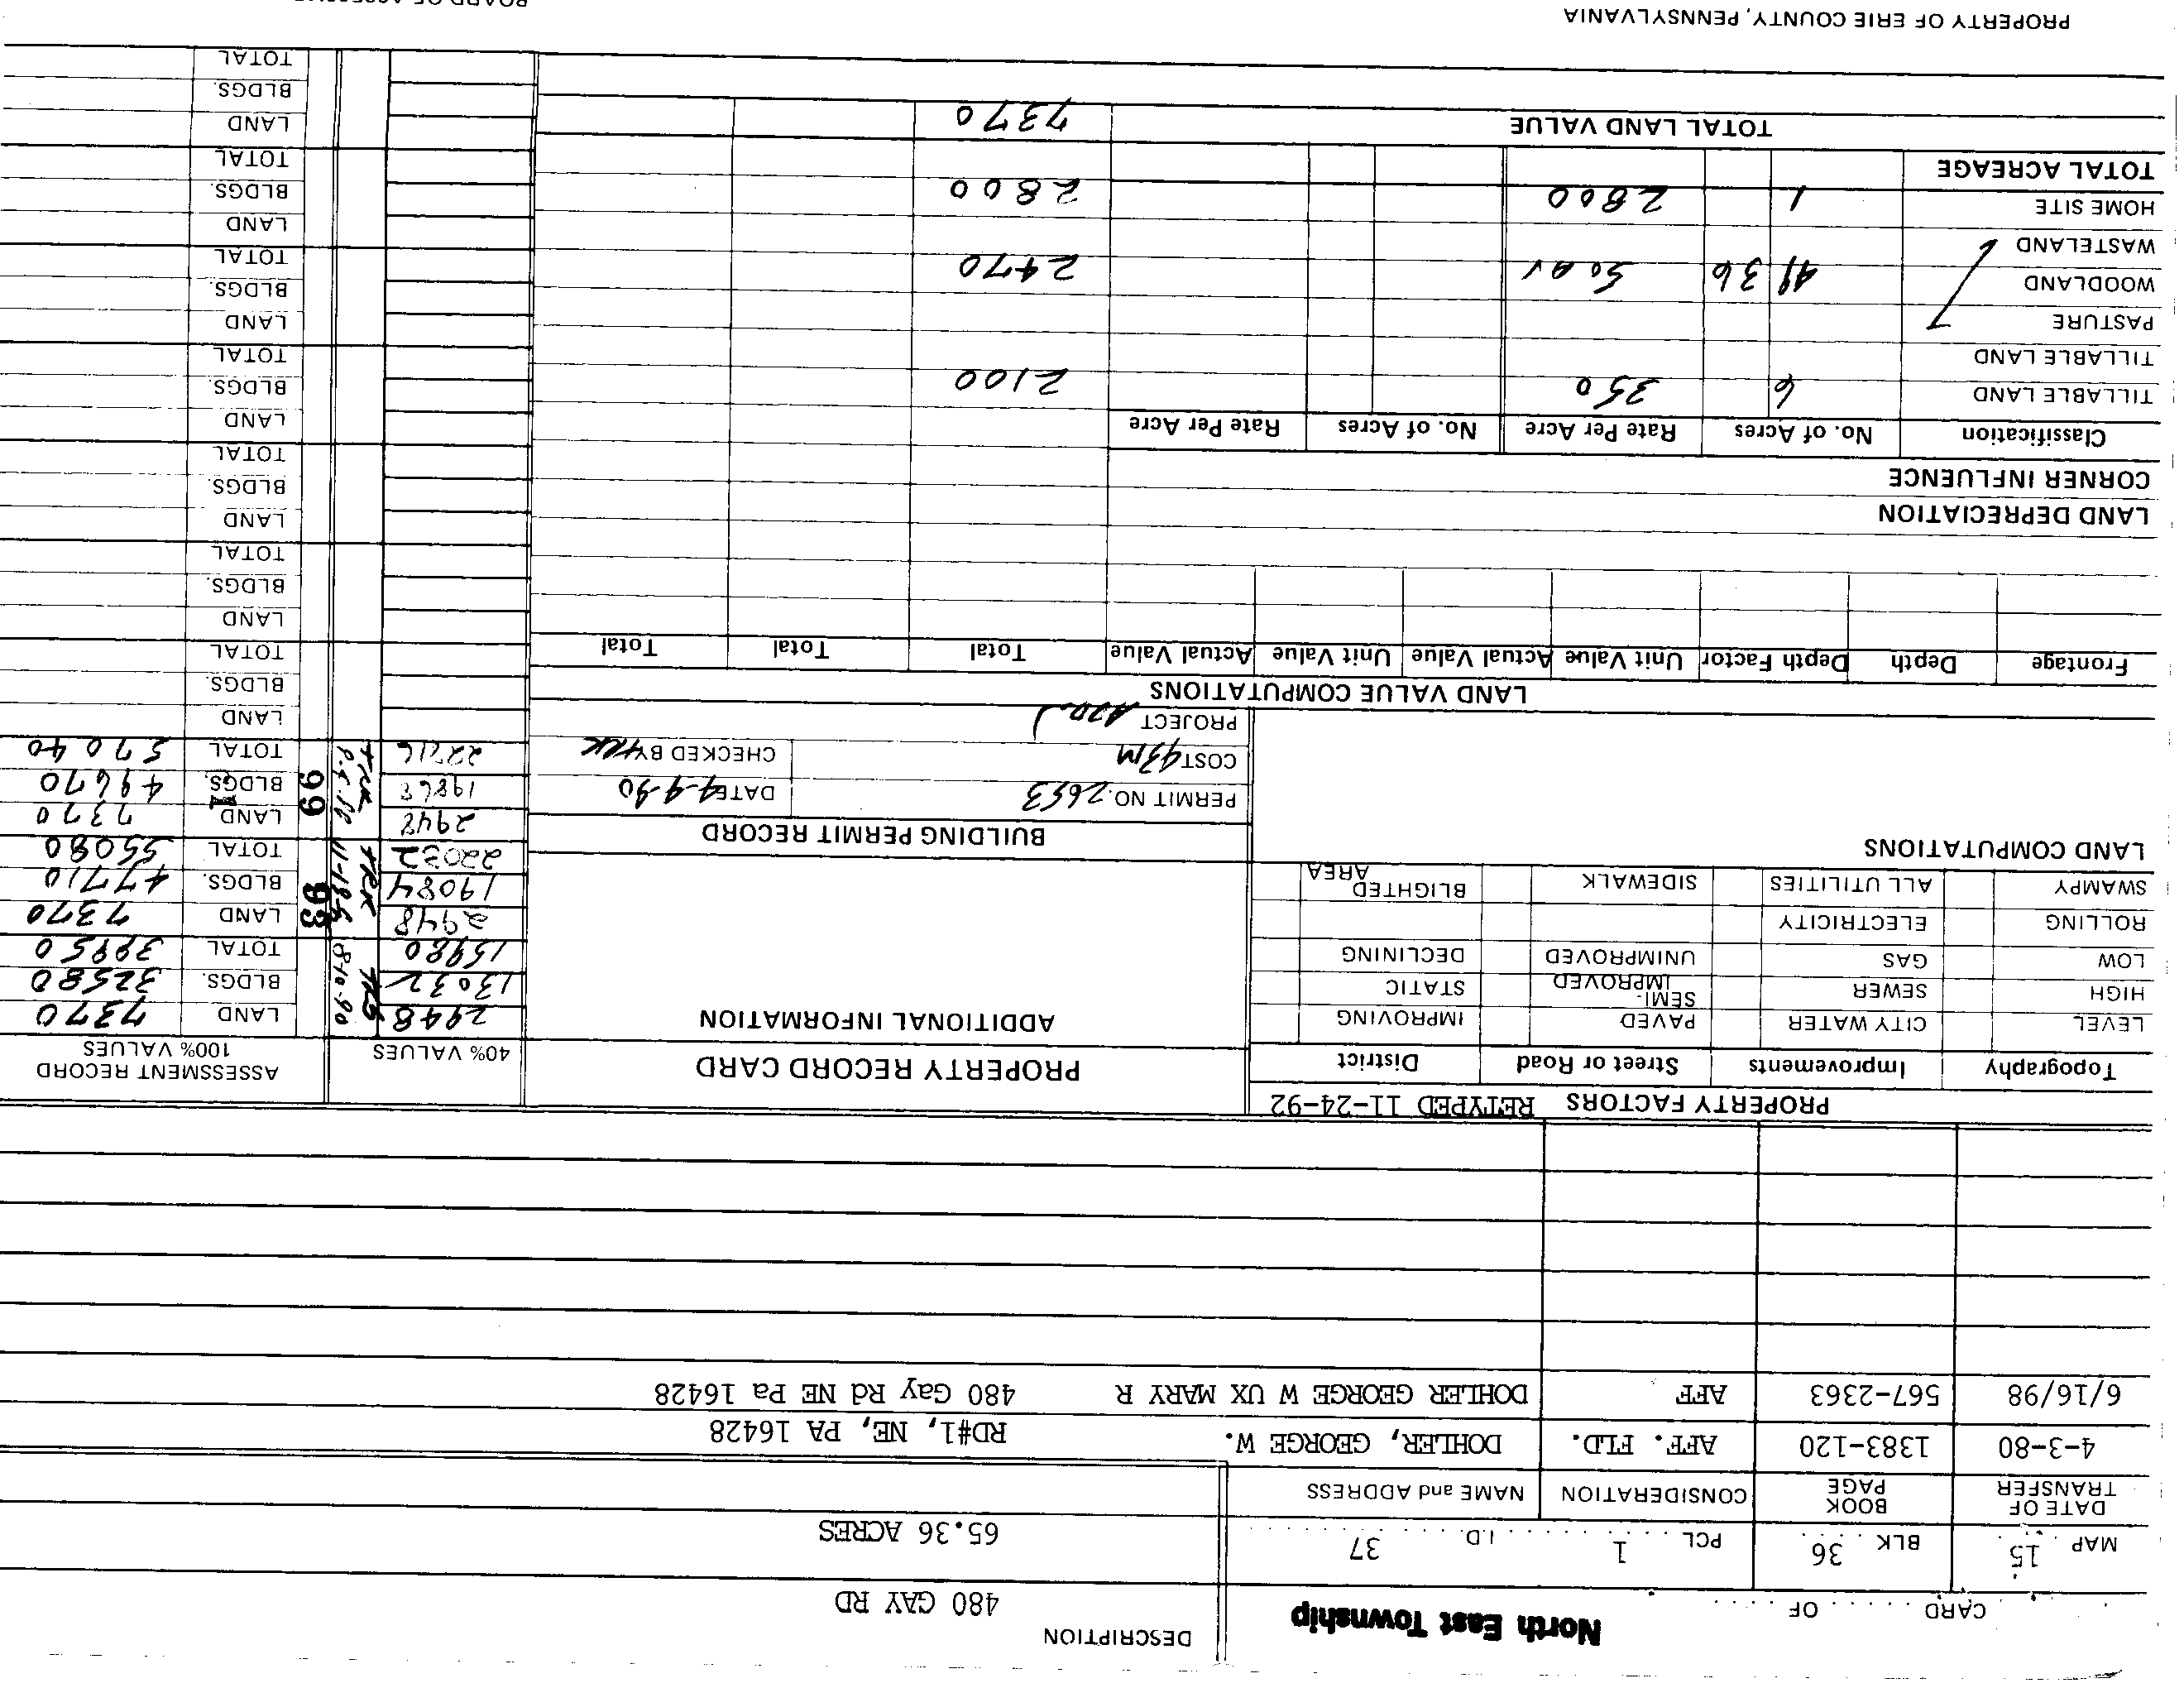 North East Township
DESCRIPTION
CARD ..... OF .....
480 GAY RD
MAP 15 BLK 36 PCL 1 I.D. 37
65.36 ACRES
DATE OF TRANSFER BOOK PAGE CONSIDERATION NAME and ADDRESS
4-3-80 1383-120 AFF. FLD. DOHLER, GEORGE W. RD#1, NE, PA 16428
6/16/98 567-2363 AFF DOHLER GEORGE W UX MARY R 480 Gay Rd NE Pa 16428
PROPERTY FACTORS RETYPED 11-24-92
Topography Improvements Street or Road District
LEVEL CITY WATER PAVED IMPROVING
HIGH SEWER SEMI-IMPROVED STATIC
LOW GAS UNIMPROVED DECLINING
ROLLING ELECTRICITY
SWAMPY ALL UTILITIES SIDEWALK BLIGHTED AREA
LAND COMPUTATIONS
PROPERTY RECORD CARD
ADDITIONAL INFORMATION
BUILDING PERMIT RECORD
PERMIT NO. 2653 DATE 4-9-90
COST 43M CHECKED BY
PROJECT
40% VALUES
ASSESSMENT RECORD
100% VALUES
2948 LAND 7370
13032 BLDGS. 32580
15980 TOTAL 39950
8-10-90
2948 LAND 7370
19084 BLDGS. 47710
22032 TOTAL 55080
93
2948 LAND 7370
19868 BLDGS. 49670
22816 TOTAL 57040
99
LAND
BLDGS.
TOTAL
LAND
BLDGS.
TOTAL
LAND
BLDGS.
TOTAL
LAND
BLDGS.
TOTAL
LAND
BLDGS.
TOTAL
LAND
BLDGS.
TOTAL
LAND
BLDGS.
TOTAL
LAND VALUE COMPUTATIONS
Frontage Depth Depth Factor Unit Value Actual Value Unit Value Actual Value Total Total Total
LAND DEPRECIATION
CORNER INFLUENCE
Classification No. of Acres Rate Per Acre No. of Acres Rate Per Acre
TILLABLE LAND 6 350 2100
TILLABLE LAND
PASTURE
WOODLAND 49 36 50 AV 2470
WASTELAND
HOME SITE 1 2800 2800
TOTAL ACREAGE
TOTAL LAND VALUE 7370
PROPERTY OF ERIE COUNTY, PENNSYLVANIA